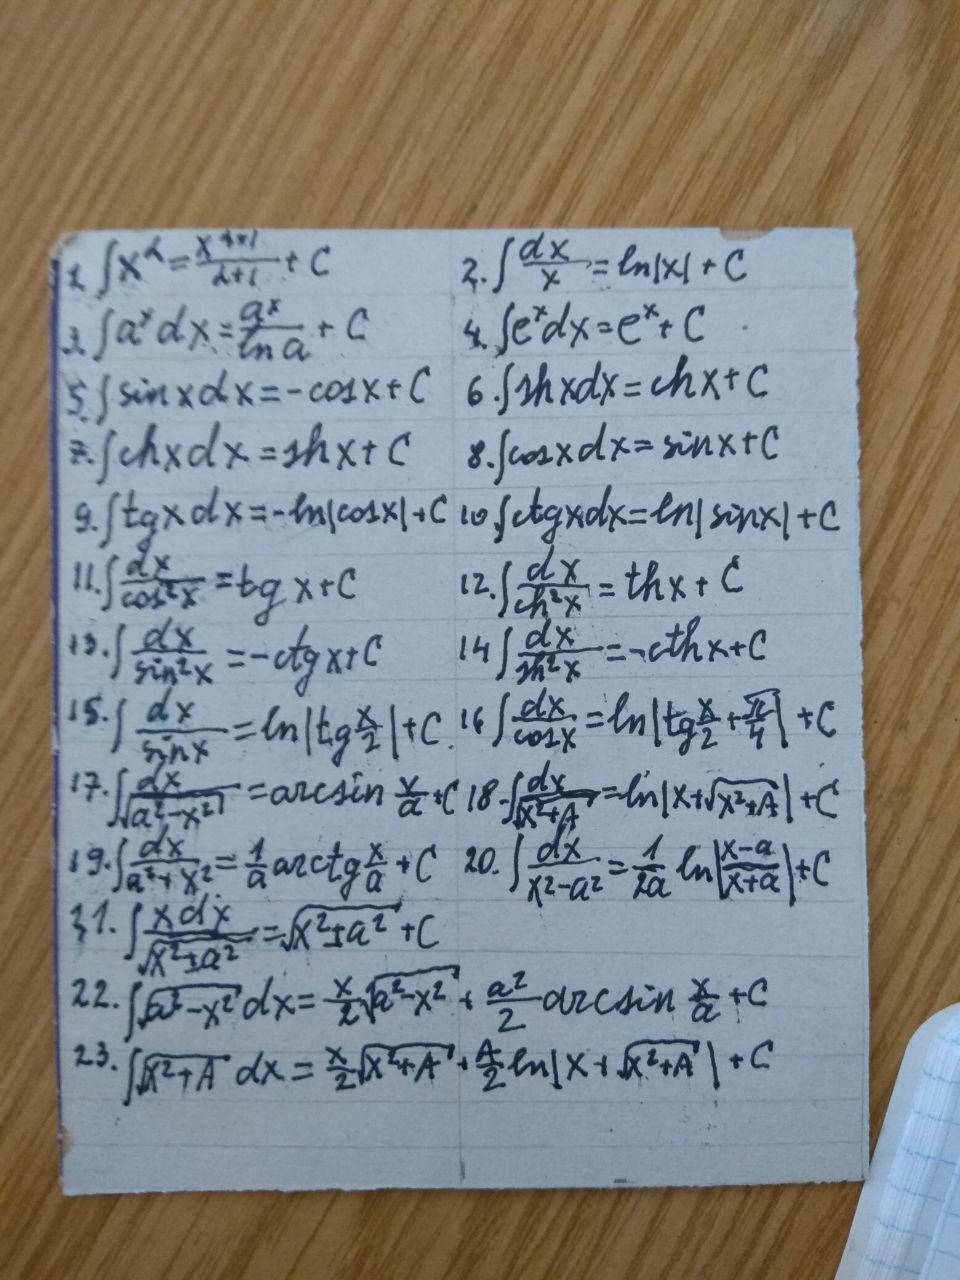 1. ∫x^α = x^(α+1)/(α+1) + C
2. ∫dx/x = ln|x| + C
3. ∫a^x dx = a^x/ln a + C
4. ∫e^x dx = e^x + C
5. ∫sin x dx = -cos x + C
6. ∫sh x dx = ch x + C
7. ∫ch x dx = sh x + C
8. ∫cos x dx = sin x + C
9. ∫tg x dx = -ln|cos x| + C
10. ∫ctg x dx = ln|sin x| + C
11. ∫dx/cos²x = tg x + C
12. ∫dx/ch²x = th x + C
13. ∫dx/sin²x = -ctg x + C
14. ∫dx/sh²x = -cth x + C
15. ∫dx/sin x = ln|tg x/2| + C
16. ∫dx/cos x = ln|tg x/2 + π/4| + C
17. ∫dx/√(a²-x²) = arcsin x/a + C
18. ∫dx/√(x²+A) = ln|x+√(x²+A)| + C
19. ∫dx/(a²+x²) = 1/a arctg x/a + C
20. ∫dx/(x²-a²) = 1/2a ln|(x-a)/(x+a)| + C
21. ∫x dx/√(x²±a²) = √(x²±a²) + C
22. ∫√(a²-x²) dx = x/2 √(a²-x²) + a²/2 arcsin x/a + C
23. ∫√(x²+A) dx = x/2 √(x²+A) + A/2 ln|x+√(x²+A)| + C